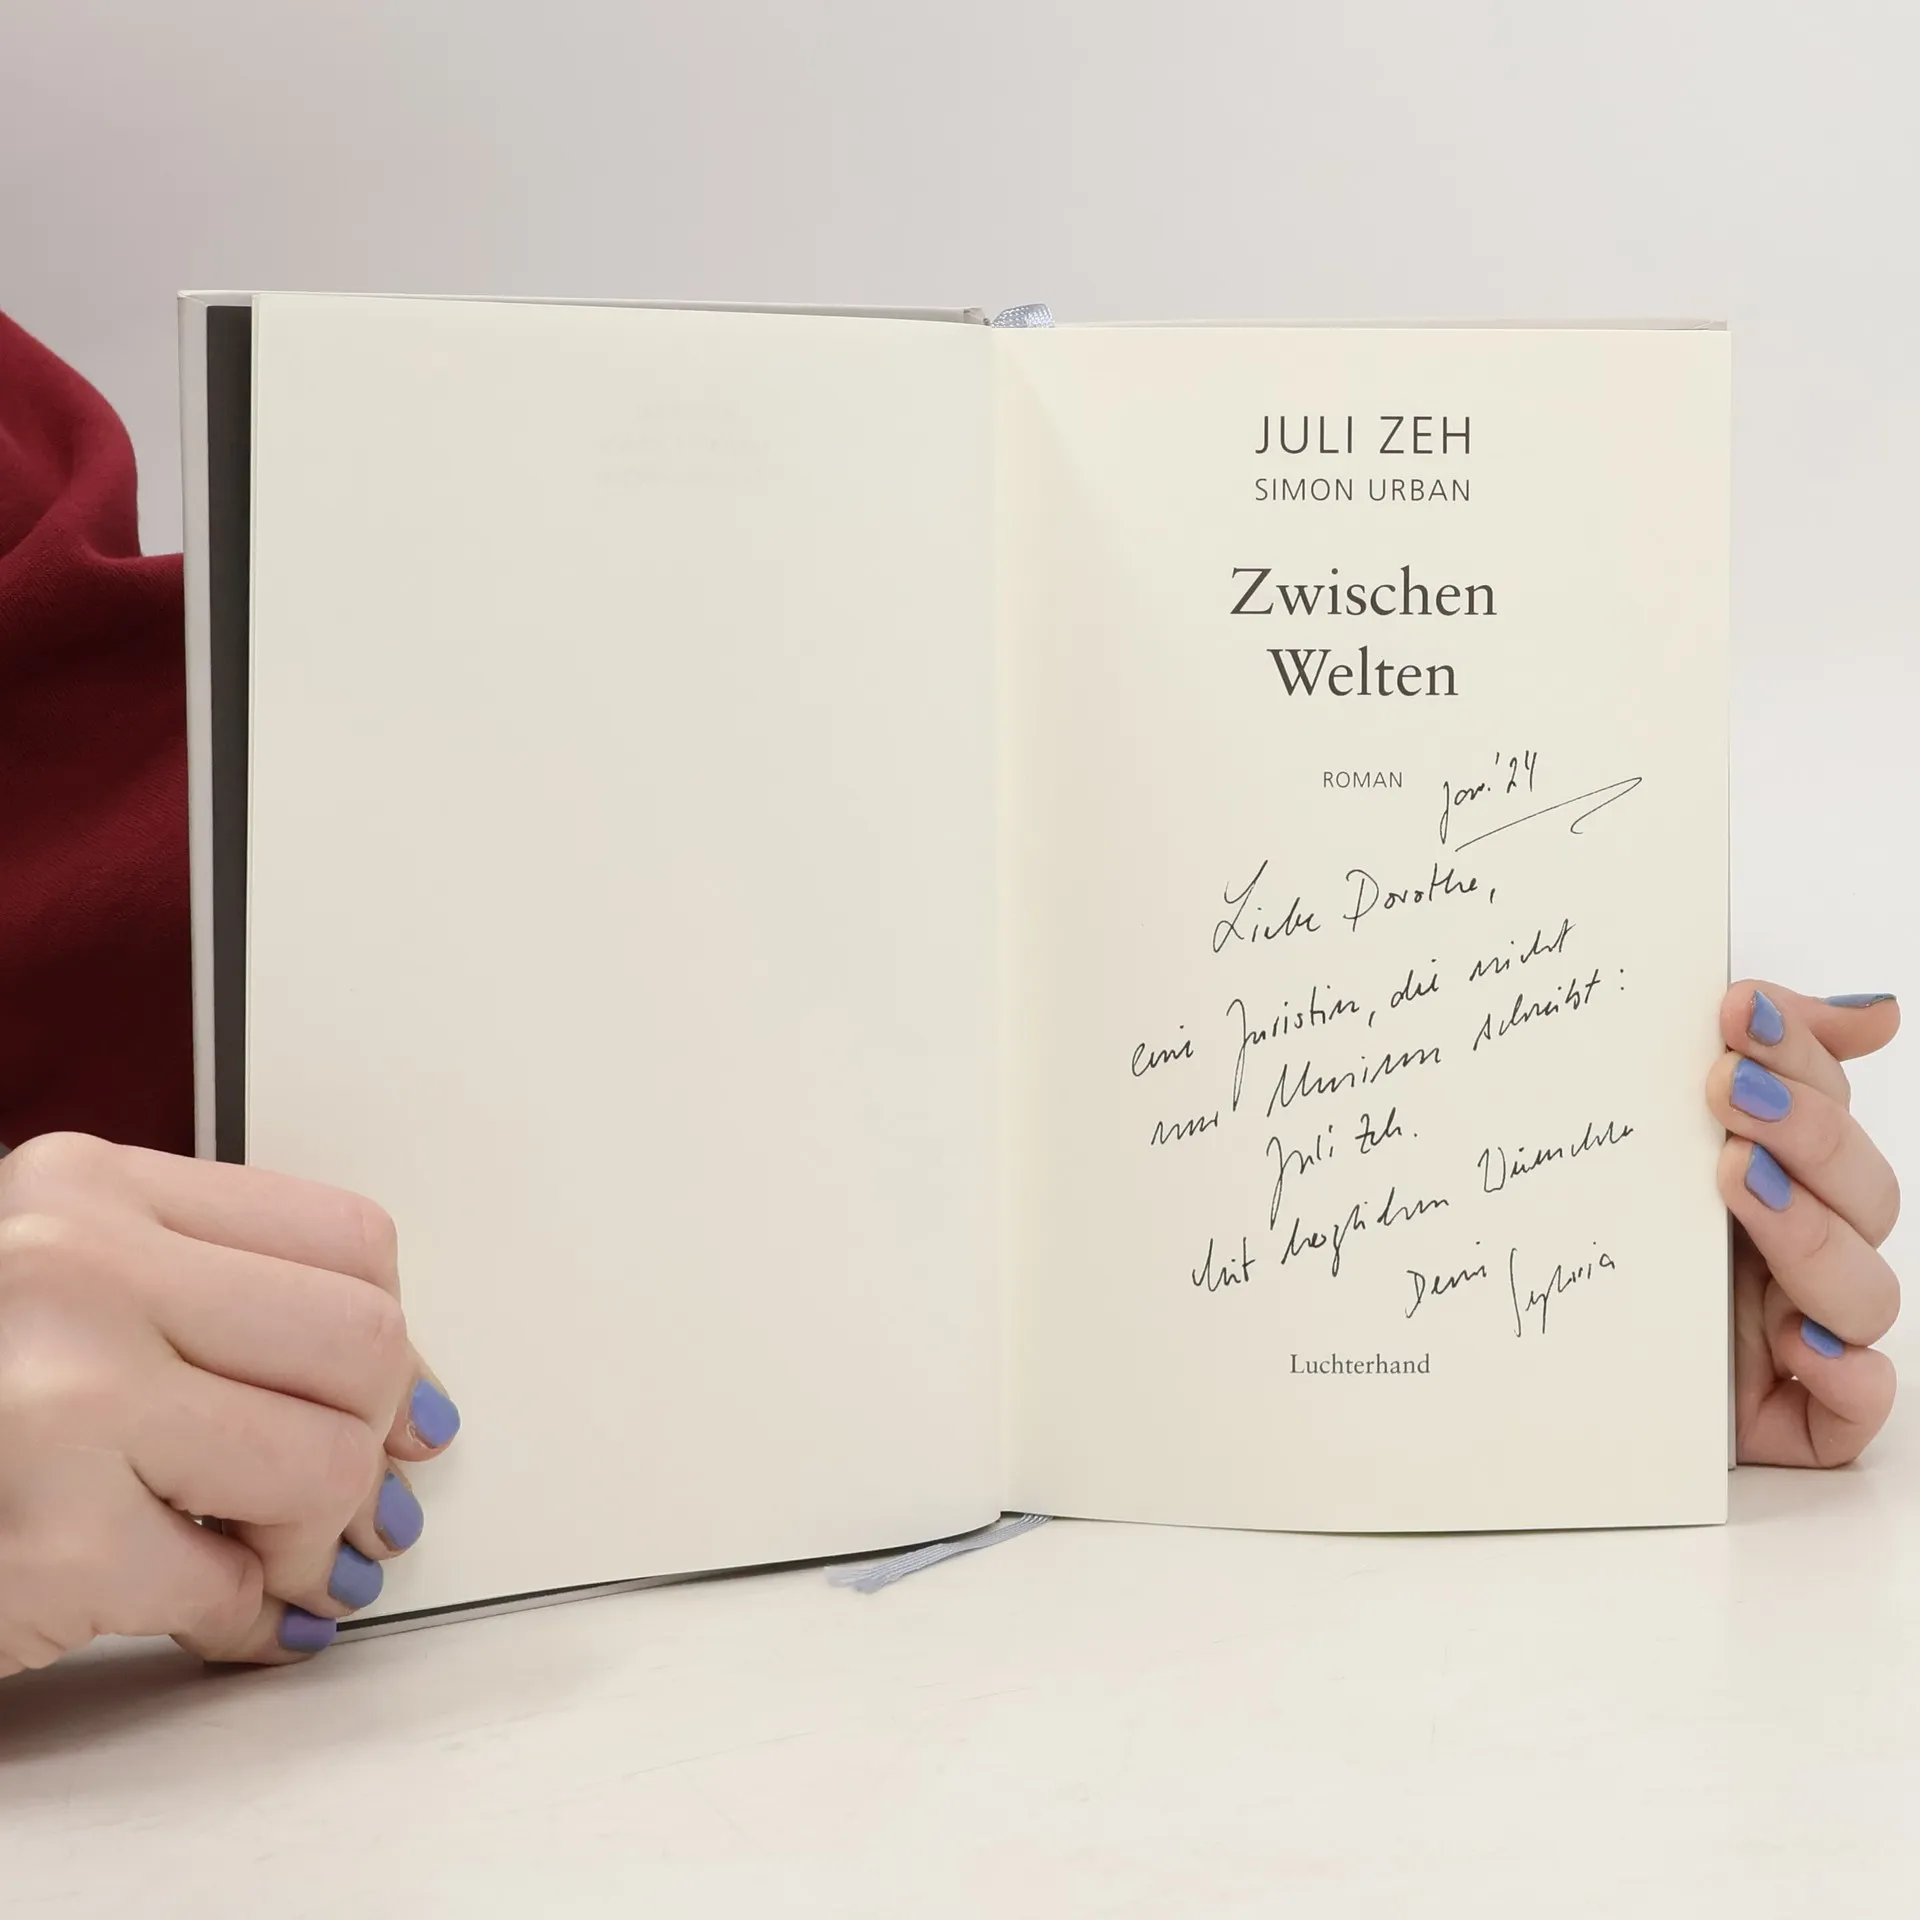 JULI ZEH
SIMON URBAN
Zwischen
Welten
ROMAN
Jan. '24
Liebe Dorothe,
eine Juristin, die nicht
nur schreibt:
Juli Zeh.
Mit herzlichen Wünschen
Deine Sylvia
Luchterhand